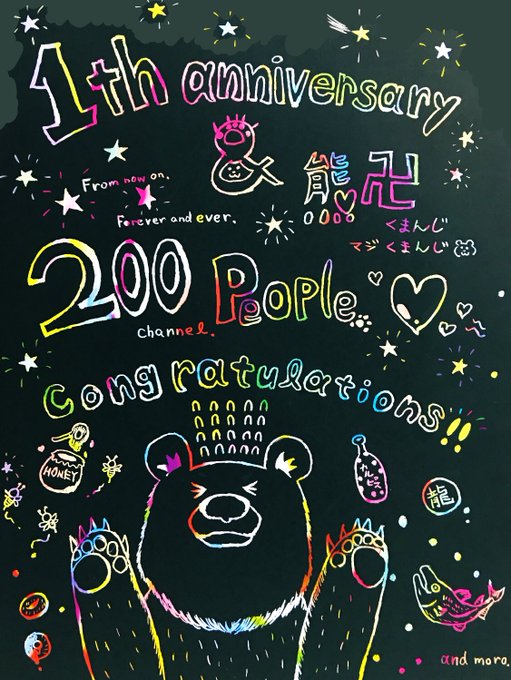 1th anniversary
& 熊卍
From now on,
Forever and ever.
くまんじ
マジ くまんじ
200 People
channel.
congratulations!!
HONEY
カルピス
龍
and more.